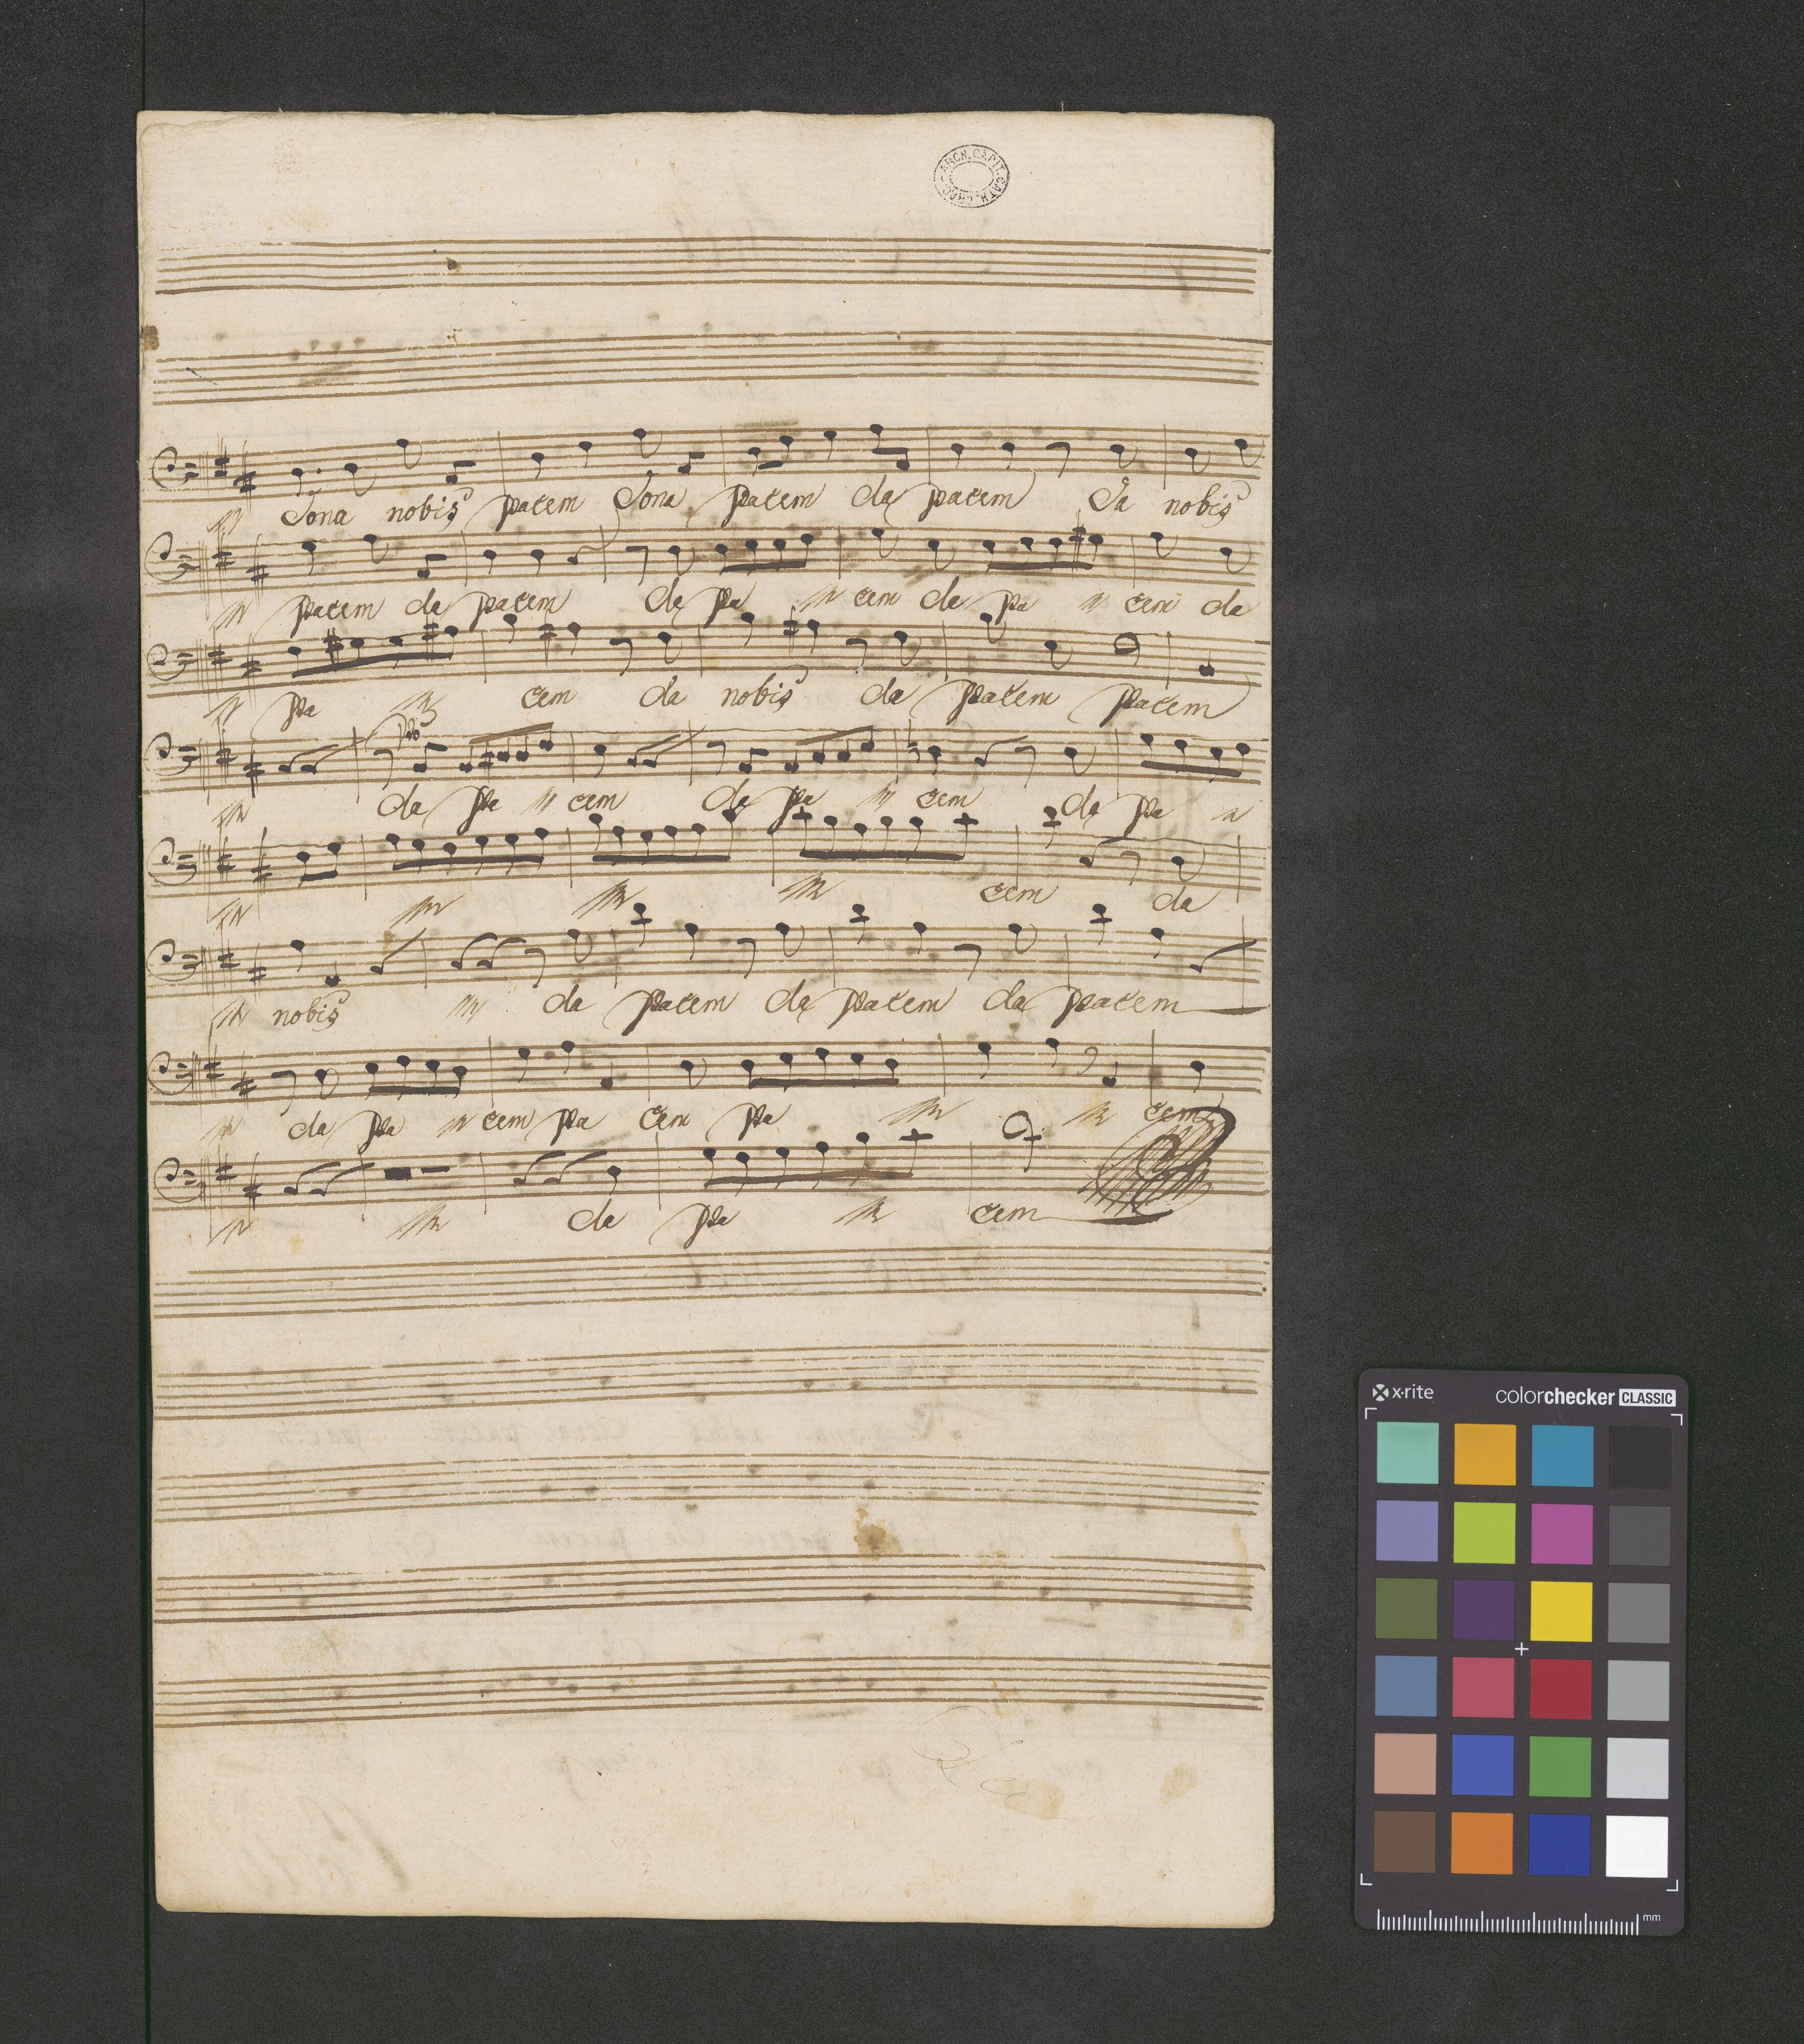 ARCH. CAPIT. CATH. CRAC.
Dona nobis pacem Dona pacem da pacem Da nobis
pacem da pacem da pa cem da pa cem da
pa cem da nobis da pacem pacem
po
da pa cem da pa cem da pa
cem da
nobis da pacem da pacem da pacem
da pa cem pa cem pa cem
da pa cem
x-rite colorchecker CLASSIC
mm